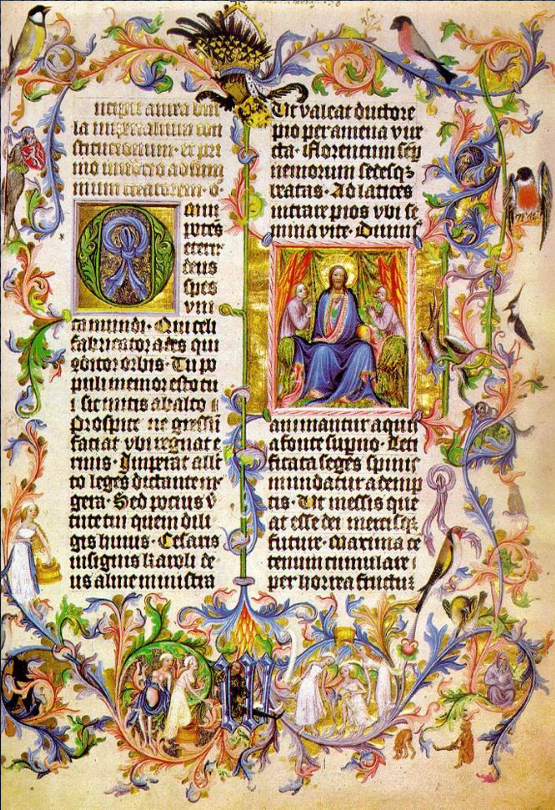 ncipit aurea bul
la imperialium con
stitucionum · et pri
mo invectio ad om
nium creatorem · O
mni
potes
etern
deus
spes
vni
ca mundi · Qui celi
fabricator ades qui
ꝯditor orbis · Tu po
puli memor esto tu
i sic mitis ab alto
prospice ne gressū
faciat vbi regnat e
rinis · Imperat alle
to leges dictante me
gera · Sed pocius v̄
tute tui quem dili
gis huius · Cesaris
insignis karoli de
us alme ministra
Vt valeat ductore
pio per amena vire
cta · Florentum sep
nemorum sedesqꝫ
beatas · Ad latices
intrare pios vbi se
mina vite · Diuinis
animantur aquis
a fonte supno · Leti
ficata seges spinis
mundatur ademp
tis · Vt messis que
at esse dei mercisqꝫ
future · Maxima ce
tenum cumulare
per horrea fructū